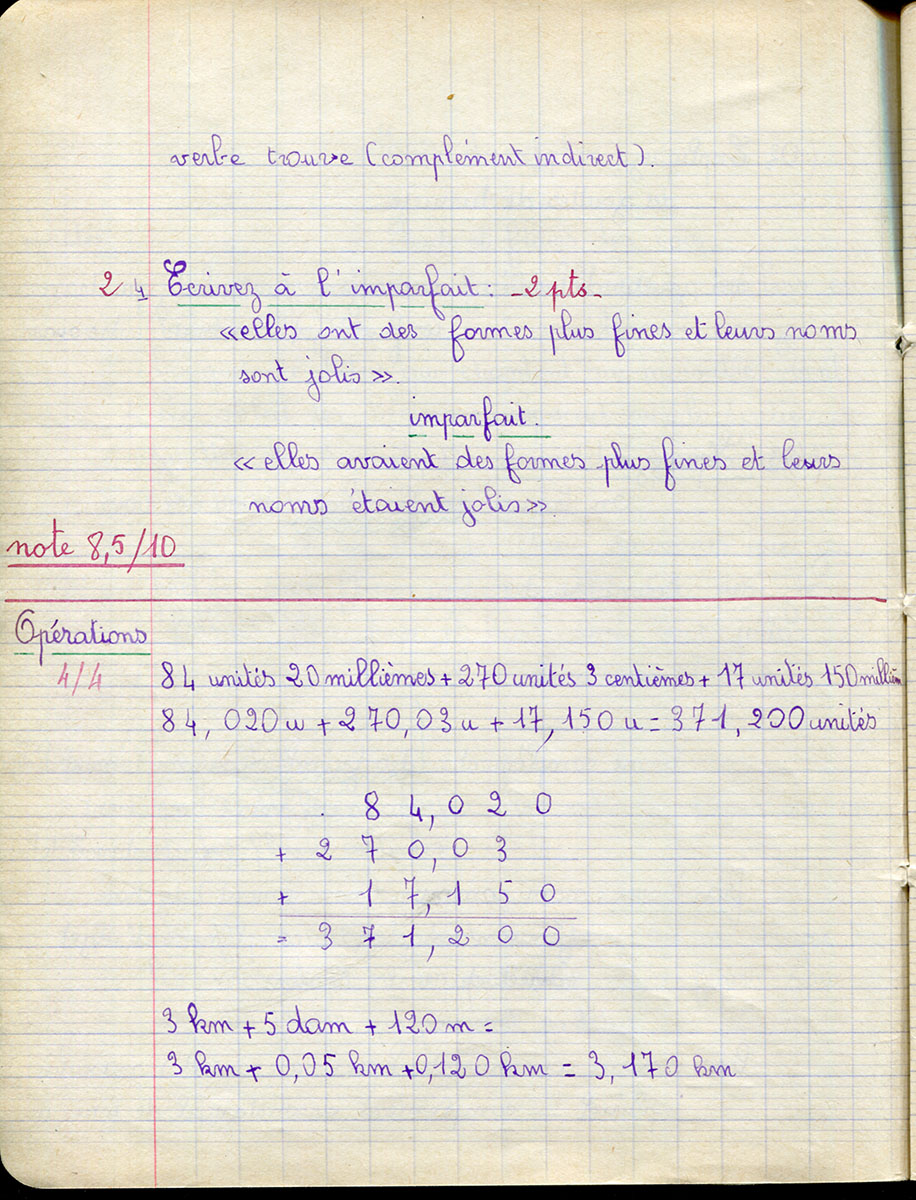 verbe trouve (complément indirect).
2 4 Ecrivez à l'imparfait : -2 pts-
«elles ont des formes plus fines et leurs noms
sont jolis».
imparfait.
«elles avaient des formes plus fines et leurs
noms étaient jolis»
note 8,5/10
Opérations
4/4
84 unités 20 millièmes + 270 unités 3 centièmes + 17 unités 150 millièm
84,020 u + 270,03 u + 17,150 u = 371,200 unités
84,020
+ 270,03
+ 17,150
= 371,200
3 km + 5 dam + 120 m =
3 km + 0,05 km + 0,120 km = 3,170 km